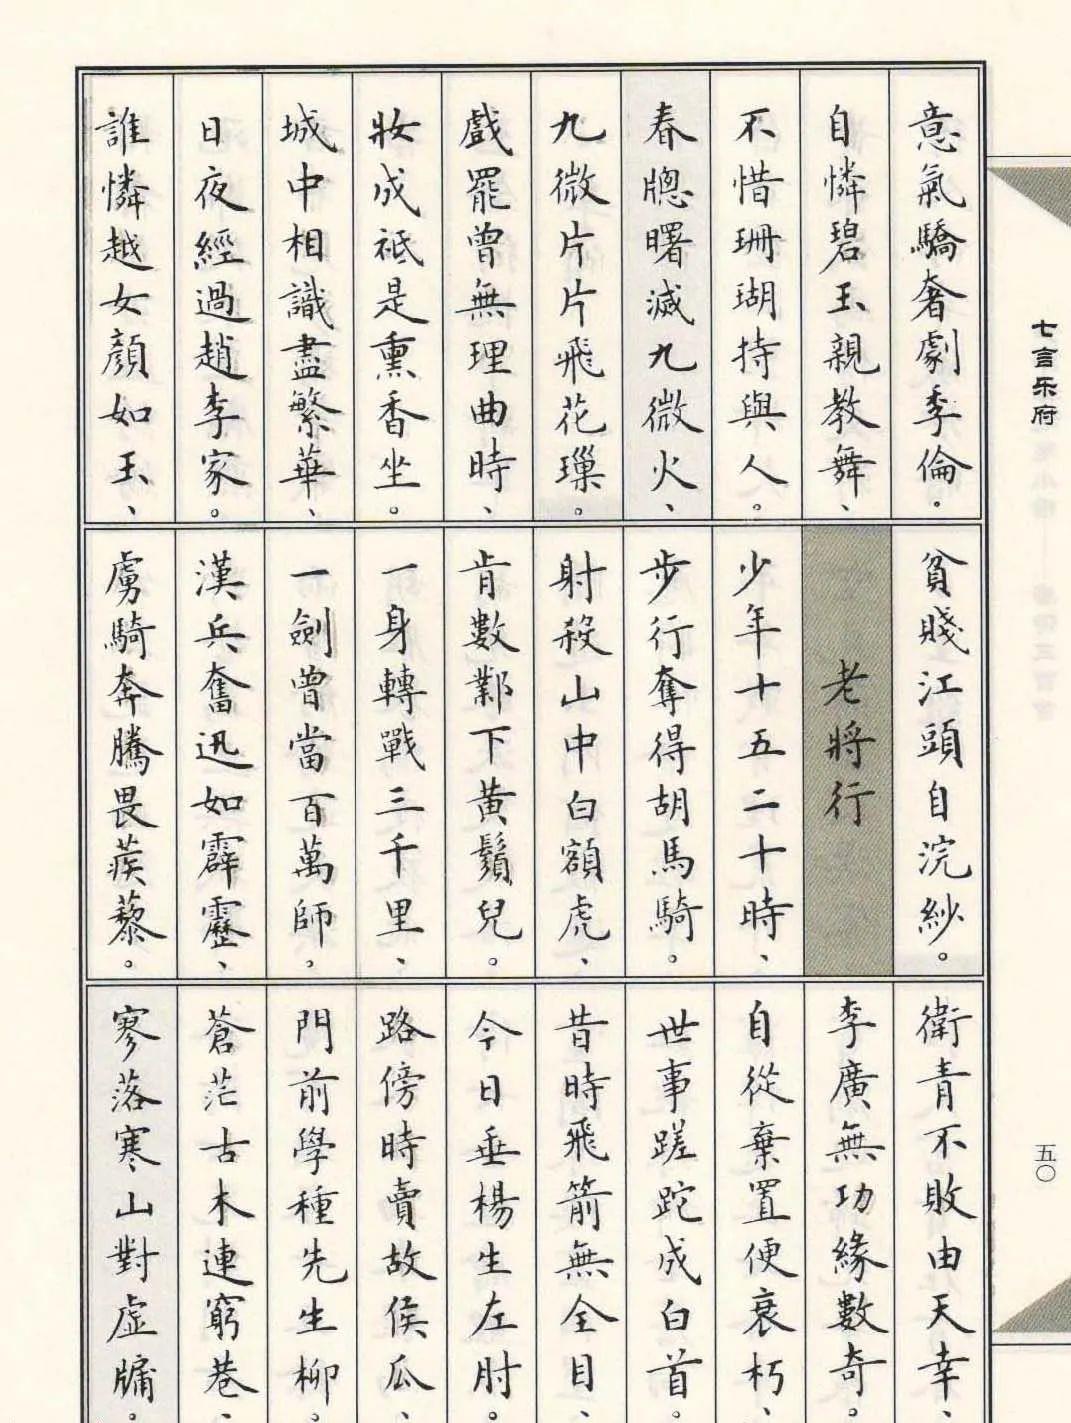 意氣驕奢劇季倫。
自憐碧玉親教舞、
不惜珊瑚持與人。
春牕曙滅九微火、
九微片片飛花璅。
戲罷曾無理曲時、
妝成祗是熏香坐。
城中相識盡繁華、
日夜經過趙李家。
誰憐越女顏如玉、
貧賤江頭自浣紗。
老將行
少年十五二十時、
步行奪得胡馬騎。
射殺山中白額虎、
肯數鄴下黃鬚兒。
一身轉戰三千里、
一劍曾當百萬師。
漢兵奮迅如霹靂、
虜騎奔騰畏蒺藜。
衛青不敗由天幸、
李廣無功緣數奇。
自從棄置便衰朽、
世事蹉跎成白首。
昔時飛箭無全目、
今日垂楊生左肘。
路傍時賣故侯瓜、
門前學種先生柳。
蒼茫古木連窮巷、
寥落寒山對虛牖。
七言乐府
五〇